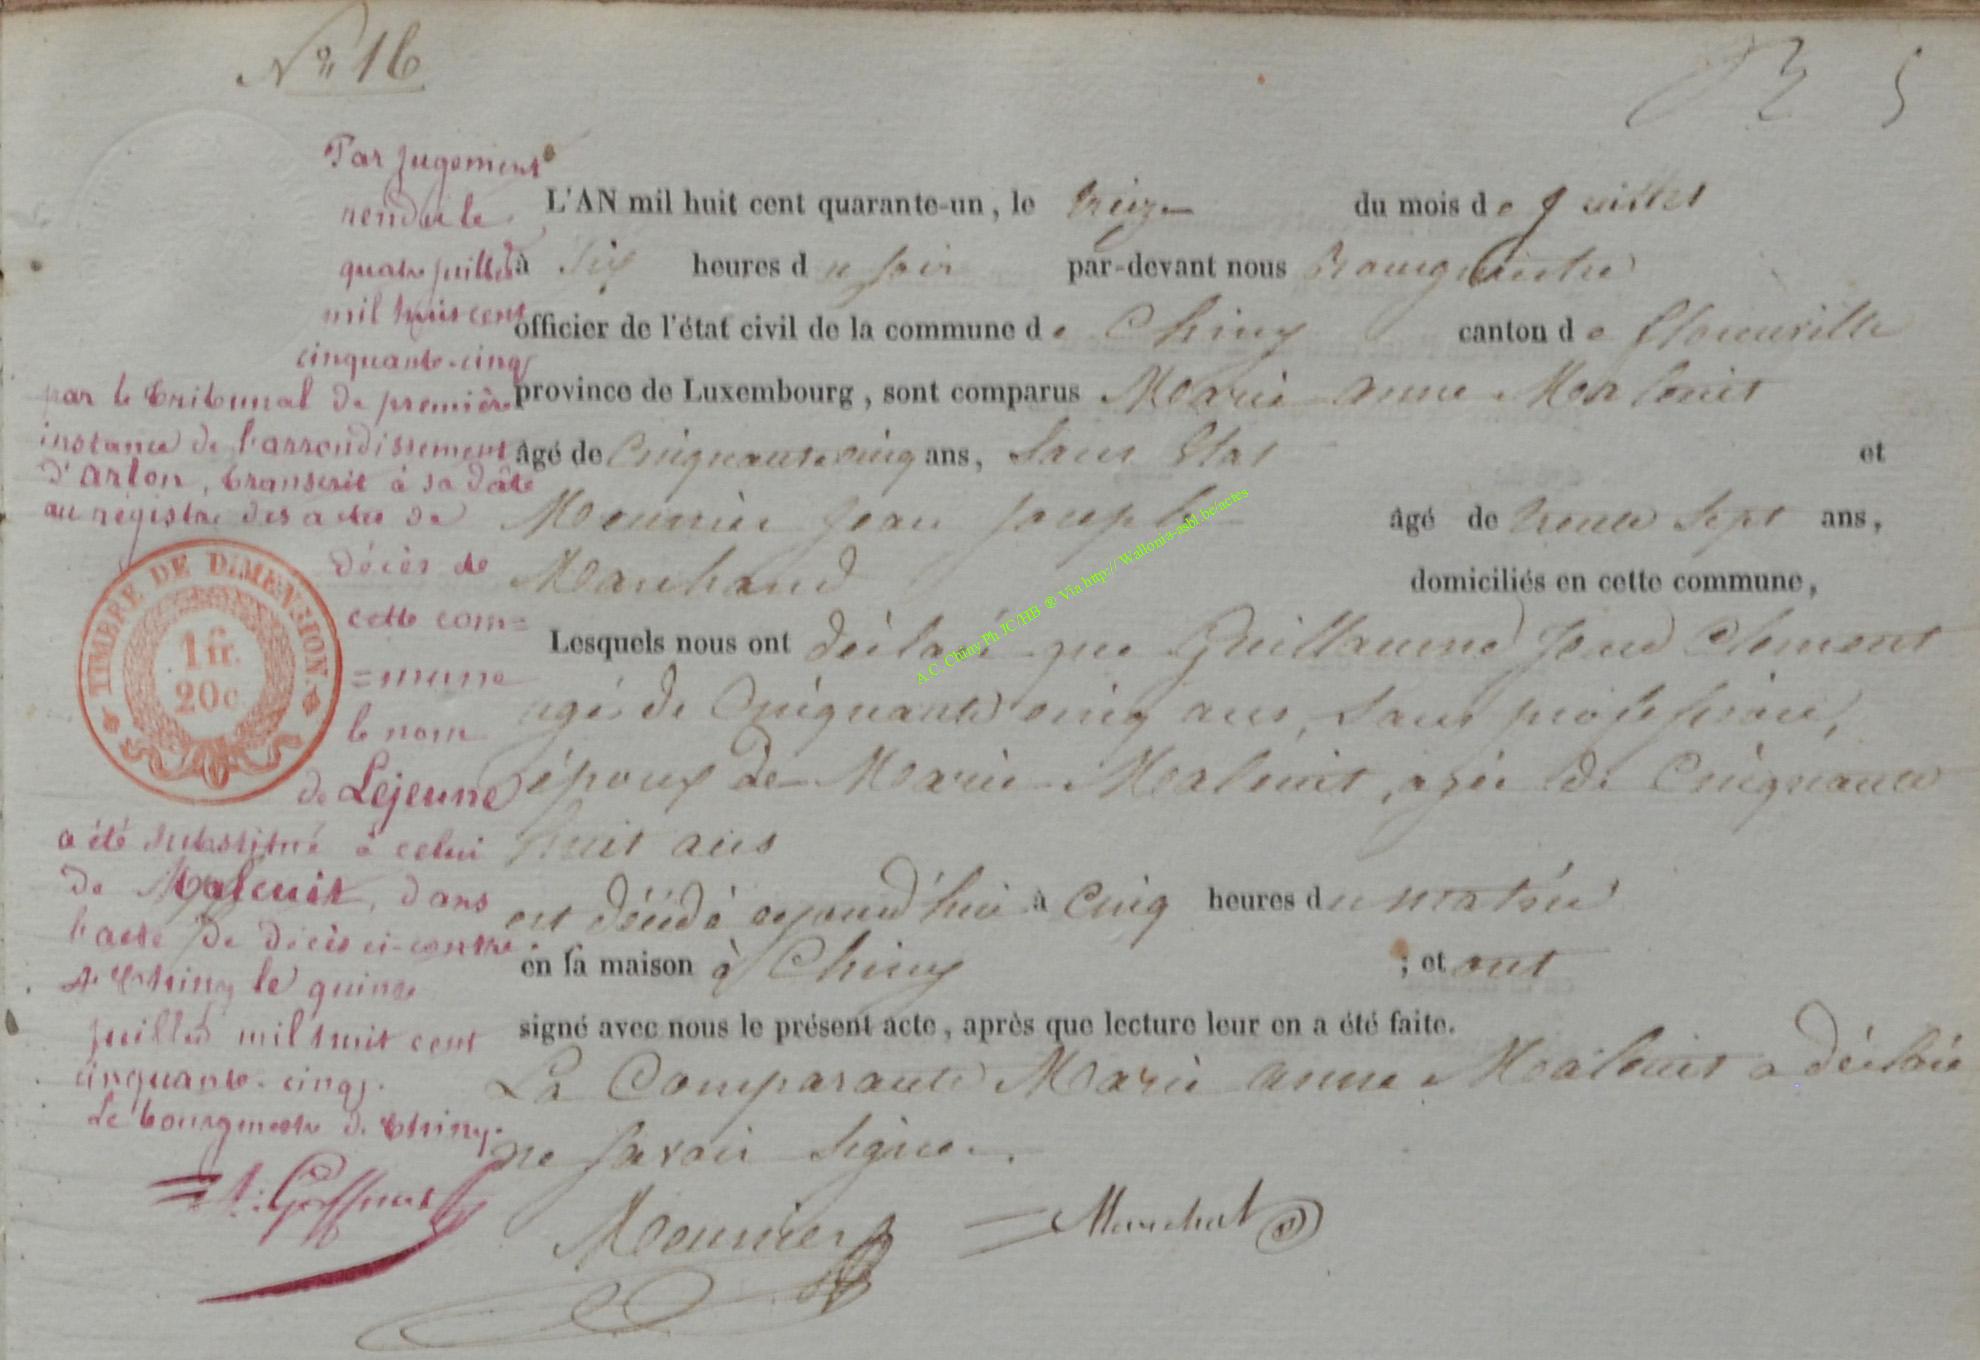 N° 16
Par jugement
rendu le
quatre juillet
mil huit cent
cinquante-cinq
par le tribunal de première
instance de l'arrondissement
d'Arlon, transcrit à sa date
au registre des actes de
décès de
cette com=
=mune
le nom
de Lejeune
a été substitué à celui
de Malcuit, dans
l'acte de décès ci-contre
A Chiny le quinze
juillet mil huit cent
cinquante-cinq.
Le bourgmestre de Chiny.
TIMBRE DE DIMENSION.
1 fr.
20 c
L'AN mil huit cent quarante-un, le treize du mois de Juillet
à Six heures du soir par-devant nous Bourgmestre
officier de l'état civil de la commune de Chiny canton de Florenville
province de Luxembourg, sont comparus Marie anne Malcuit
âgé de Cinquante cinq ans, Sans Etat et
Meunier Jean Joseph âgé de trente Sept ans,
Marchand domiciliés en cette commune,
Lesquels nous ont déclaré que Guillaume Clement
agé de Cinquante cinq ans, Sans profession,
époux de Marie Malcuit, agée de Cinquante
huit ans
est décédé aujourd'hui à Cinq heures du matin
en sa maison à Chiny ; et ont
signé avec nous le présent acte, après que lecture leur en a été faite.
La Comparante Marie anne Malcuit a déclaré
ne savoir Signer.
Meunier Marchal
A.C. Chiny Ph JC/HB ® Via http:// Wallonia-asbl.be/actes